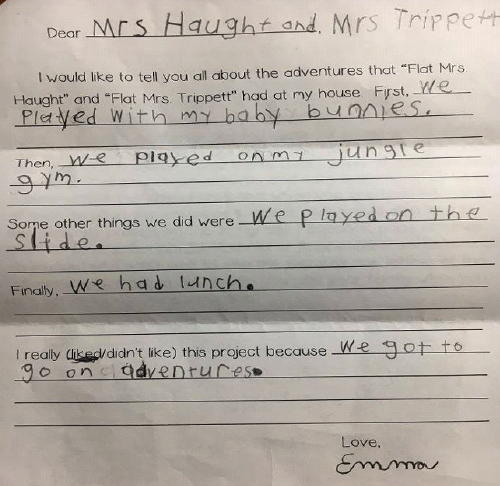 Dear Mrs Haught and. Mrs Trippett
I would like to tell you all about the adventures that "Flat Mrs.
Haught" and "Flat Mrs. Trippett" had at my house. First, We
Played with my baby bunnies.
Then, we played on my jungle
gym.
Some other things we did were We played on the
slide.
Finally, We had lunch.
I really (liked/didn't like) this project because We got to
go on adventures.
Love,
Emma